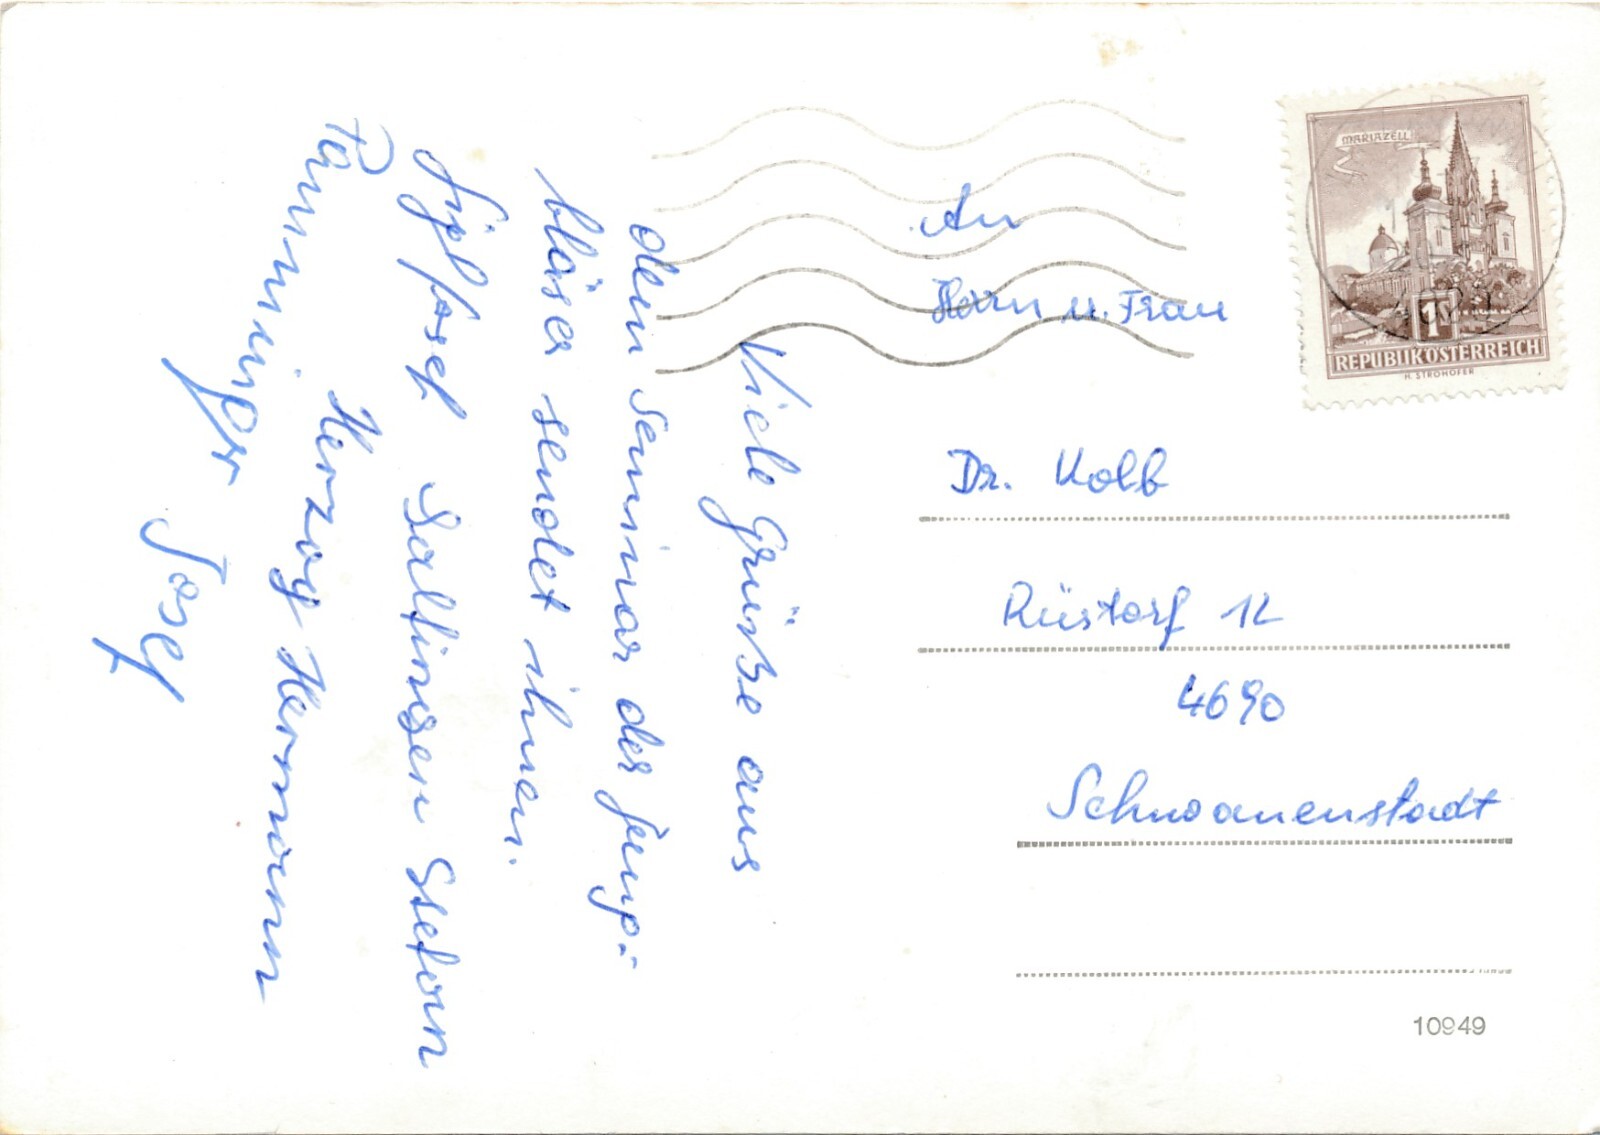 Viele Grüße aus
dem Seminar der Jung-
bläser sendet ihnen.
Josef
Stefan
Herzog Hermann
Josef
An
Herrn u. Frau
Dr. Kolb
Rüstorf 12
4690
Schwanenstadt
MARIAZELL
1
REPUBLIK ÖSTERREICH
H. STROHOFER
10949